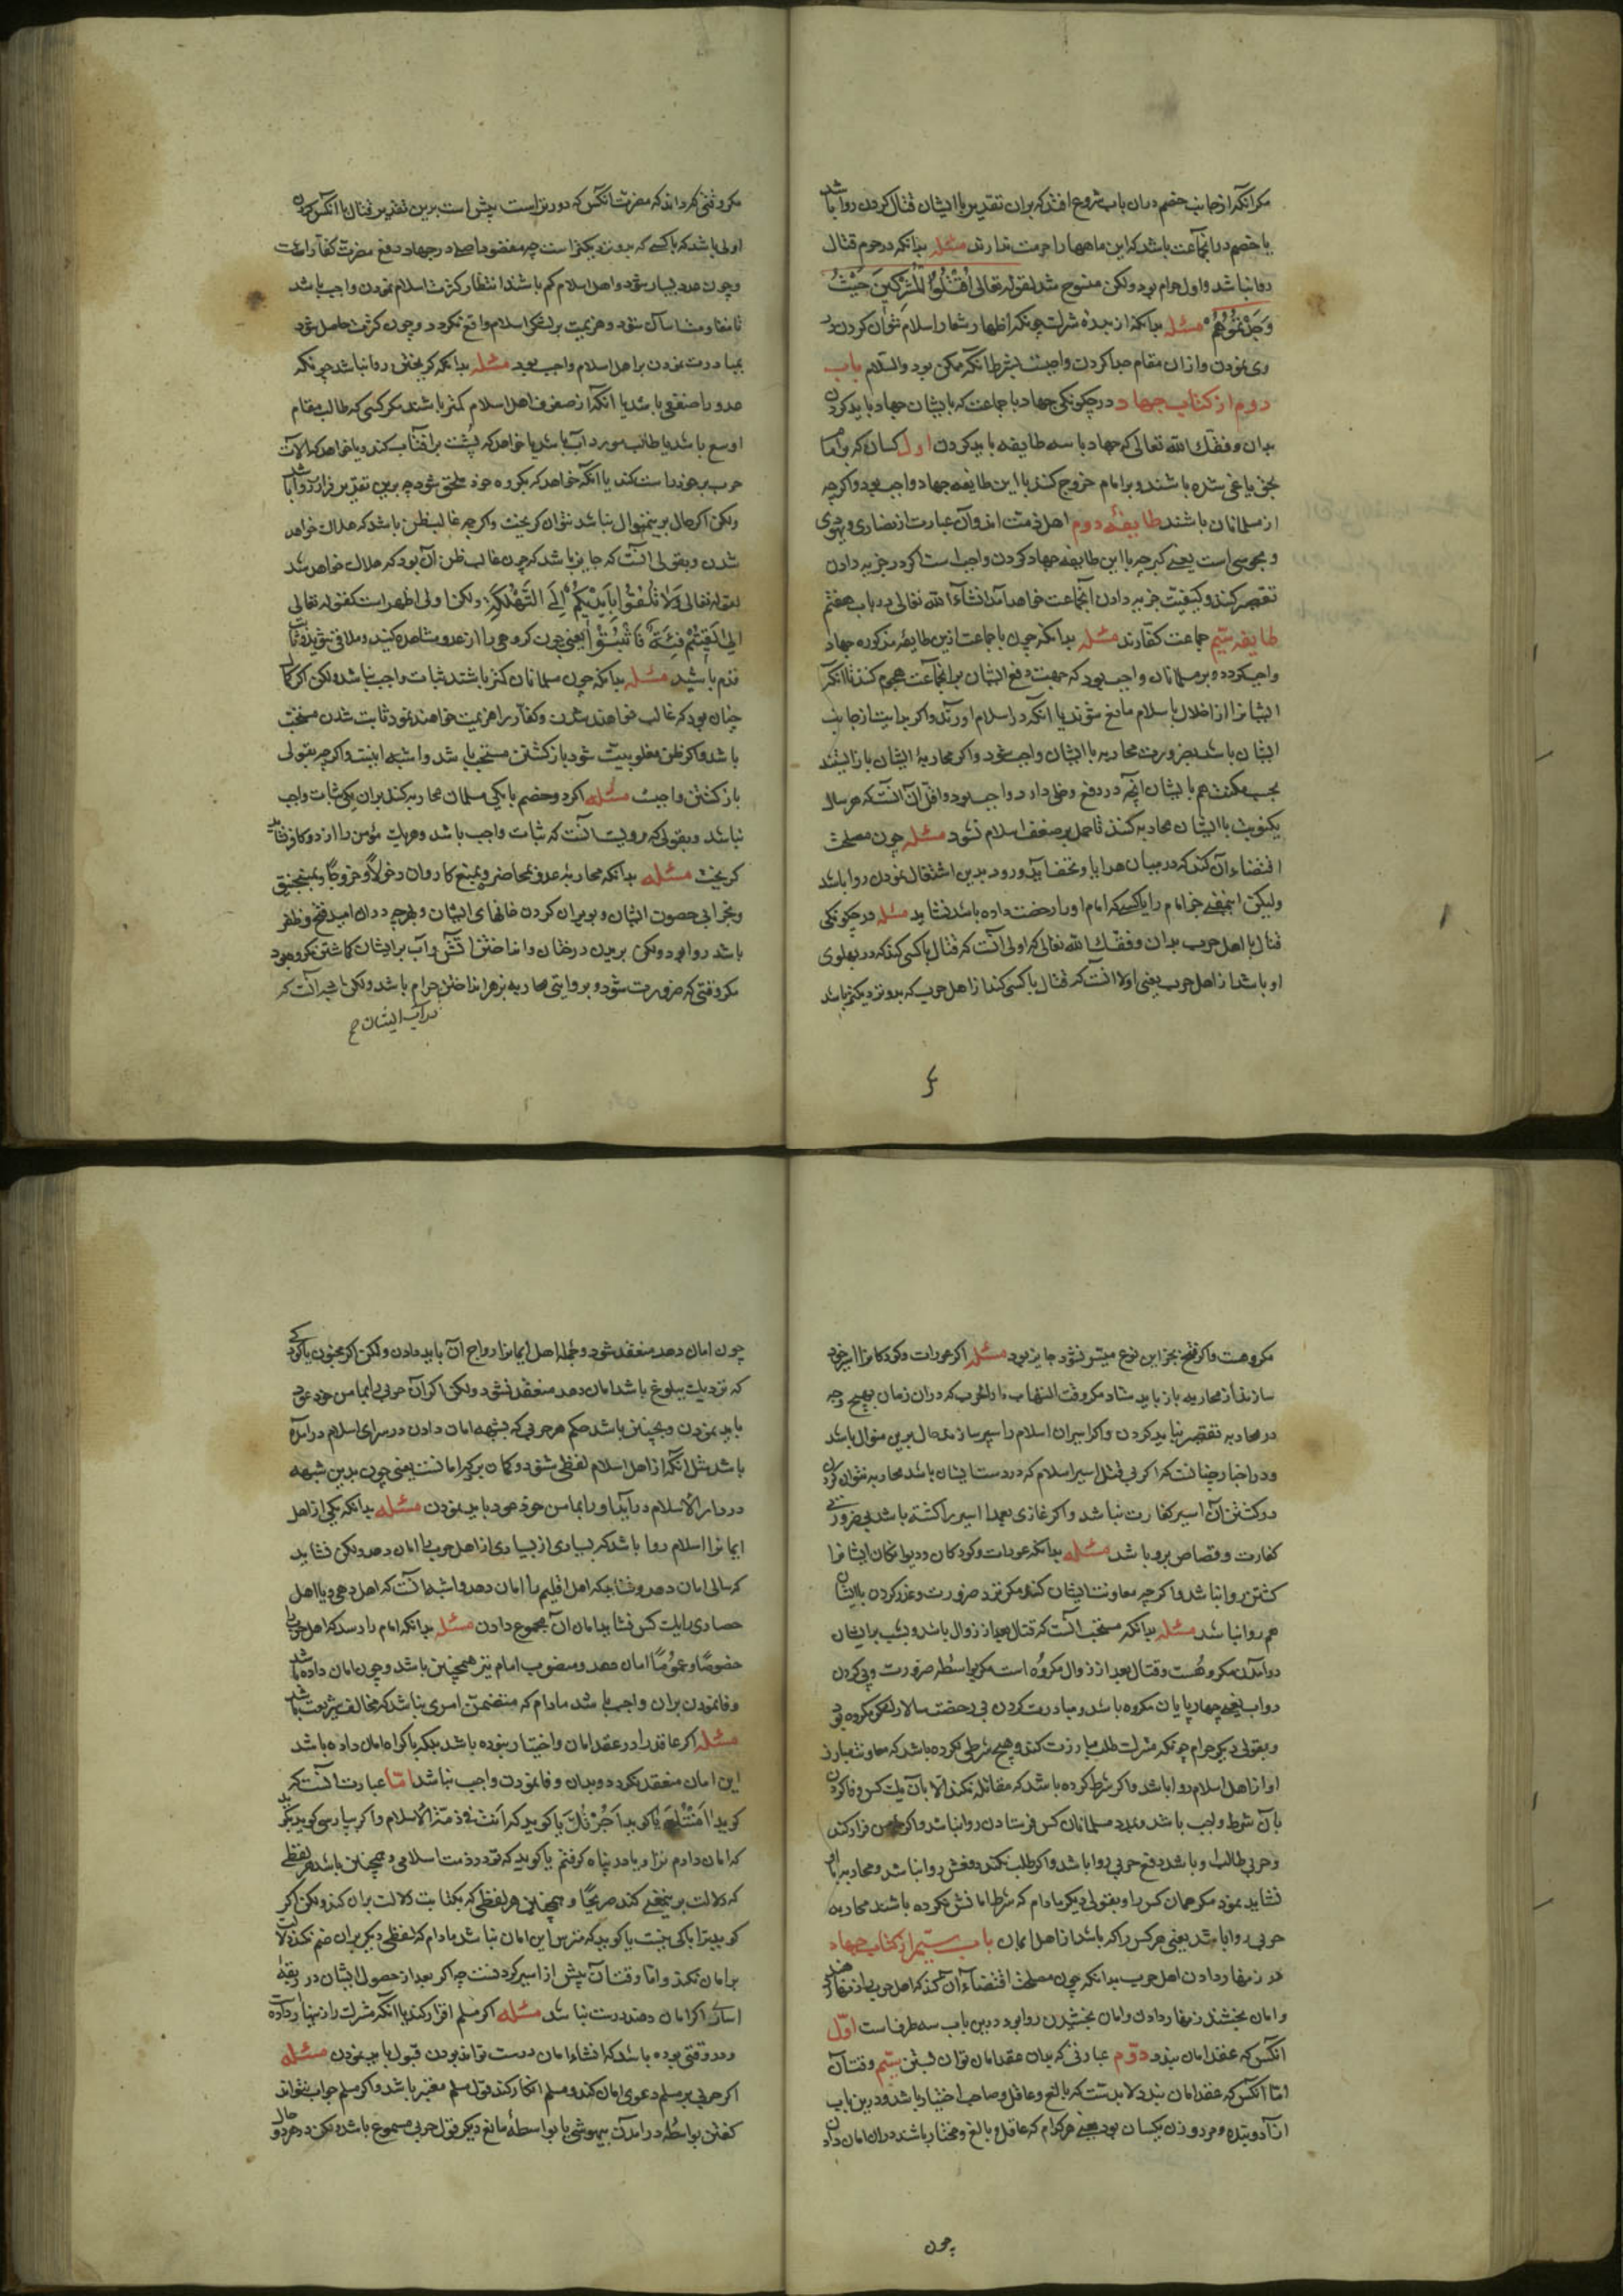 مکر آنکه از جانب خصم در آن باب شروع افتد که بر آن تقدیر با ایشان قتال کردن روا باشد
یا خصم در آنجماعت باشد که این ماهها را حرمت ندارند مسئله بدانکه در حرم قتال
روا نباشد و اول حرام بود ولکن منسوخ شد لقوله تعالی اقْتُلُوا الْمُشْرِکِینَ حَیْثُ
وَجَدْتُمُوهُمْ مسئله بدانکه از بلده شرک چونکه اظهار شعار اسلام نتوان کردن در
وی نمودن و از آن مقام جدا کردن واجبست بشرط آنکه ممکن بود والسلام باب
دوم از کتاب جهاد در چکونکی جهاد با جماعت که با ایشان جهاد باید کردن
بدان وفقک الله تعالی که جهاد با سه طایفه باید کردن اول کسان که بر امام
بحق یاغی شده باشند و بر امام خروج کنند با این طایفه جهاد واجب بود و اکرچه
از مسلمانان باشند طایفهٔ دوم اهل ذمت اند و آن عبارت از نصاری و یهودی
و مجوسی است یعنی کبر چه با این طایفه جهاد کردن واجب است اکر در جزیه دادن
تقصیر کنند و کیفیت جزیه دادن آنجماعت خواهد آمد انشاء الله تعالی در باب هفتم
طایفه سیم جماعت کفارند مسئله بدانکه چون با جماعت ازین طایفه مذکوره جهاد
واجب کردد و بر مسلمانان واجب بود که جهت دفع ایشان بر آنجماعت هجوم کنند تا آنکه
ایشانرا از اخلال باسلام مانع شوند یا آنکه در اسلام آورند و اکر بدایت از جانب
ایشان باشد بضرورت محاربه با ایشان واجب شود و اکر محاربهٔ ایشان باز ایستند
بحسب مکنت هم با ایشان آنچه در دفع دخلی دارد واجب بود و اقل آن آنست که هر سال
یکنوبت با ایشان محاربه کنند تا حمل بر ضعف اسلام نشود مسئله چون مصلحت
اقتضاء آن کند که در میان هدایا و تحف آید و رود بدین اشتغال نمودن روا باشد
ولیکن اینمعنی جز امام را یا کسی که امام او را رخصت داده باشد نشاید مسئله در چکونکی
قتال با اهل حرب بدان وفقک الله تعالی که اولی آنست که قتال با کسی کند که در پهلوی
او باشد از اهل حرب یعنی اولا آنست که قتال با کسی کند از اهل حرب که بدو نزدیکتر باشد
مکر وقتی که داند که مضرت آنکس که دورتر است بیش است برین تقدیر قتال با آنکس کردن
اولی باشد که با کسی که بدو نزدیکتر است چه مقصود اصلی در جهاد دفع مضرت کفار است
و چون عدد بسیار شود و اهل اسلام کم باشند انتظار کثرت اسلام نمودن واجب باشد
تا مقاومت آسان شود و هزیمت بر لشکر اسلام واقع نکردد و چون کثرت حاصل شود
مبادرت نمودن بر اهل اسلام واجب بود مسئله بدانکه کریختن روا نباشد چونکه
عدو را ضعفی باشد یا آنکه از صفوف اهل اسلام کمتر باشند مکر کسی که طالب مقام
اوسع باشد یا طالب مورد آب باشد یا خواهد که پشت بر آفتاب کند و یا خواهد که آلات
حرب بر خود راست کند یا آنکه خواهد که بکروه خود ملحق شود چه برین تقدیر فرار روا باشد
ولکن اکر حال برینمنوال نباشد نتوان کریخت و اکرچه غالب ظن باشد که هلاک خواهد
شدن و بقولی آنست که جایز باشد که چون غالب ظن آن بود که هلاک خواهد شد
لقوله تعالی وَلَا تُلْقُوا بِأَیْدِیکُمْ إِلَی التَّهْلُکَةِ ولکن اولی اظهر است کقوله تعالی
إذا لَقِیتُمْ فِئَةً فَاثْبُتُوا یعنی چون کروهی را از عدو مشاهده کنید و ملاقی شوید ثابت
قدم باشید مسئله بدانکه چون مسلمانان کمتر باشند ثبات واجب نباشد ولکن اکر کمان
چنان بود که غالب خواهند شدن و کفار را هزیمت خواهند نمود ثابت شدن مستحب
باشد و اکر ظن مغلوبیت شود باز کشتن مستحب باشد و اشبه اینست و اکرچه بقولی
باز کشتن واجبست مسئله اکر دو خصم با یکی مسلمان محاربه کند بر آن یکی ثبات واجب
نباشد و بقولی که مرویست آنست که ثبات واجب باشد و هر یک مؤمن را از دو کافر نشاید
کریخت مسئله بدانکه محاربهٔ عدو بمحاصره و بمنع کاروان دخولاً و خروجاً و بمنجنیق
و بخرابی حصون ایشان و بویران کردن خانهای ایشان و بهر چه در آن امید فتح و ظفر
باشد روا بود ولکن بریدن درختان و انداختن آتش و آب بر ایشان کماشتن مکروه بود
مکر وقتی که ضرورت شود و بروایتی محاربه بزهر انداختن حرام باشد ولکن اشبه آنست که
در آب ایشان
مکروهست و اکر فتح بجز این نوع میسر نشود جایز بود مسئله اکر عورات و کودکانرا سپر خود
سازند از محاربه باز باید ستاد مکر وقت التهاب دار الحرب که در آن زمان بهیچ وجه
در محاربه تقصیر نباید کردن و اکر اسیران اسلام را سپر سازند حال برین منوال باشد
و در اخبار چنانست که اکر بی قتل اسیر اسلام که در دست ایشان باشد محاربه نتوان کردن
در کشتن آن اسیر کفارت نباشد و اکر غازی بعمدا اسیر را کشته باشد بی ضرورتی
کفارت و قصاص برو باشد مسئله بدانکه عورات و کودکان و دیوانکان ایشانرا
کشتن روا نباشد و اکرچه معاونت ایشان کنند مکر نزد ضرورت و غدر کردن با ایشان
هم روا نباشد مسئله بدانکه مستحب آنست که قتال بعد از زوال باشد و بشب بر ایشان
در آمدن مکروهست و قتال بعد از زوال مکروه است مکر بواسطهٔ ضرورت و پی کردن
دواب یعنی چهارپایان مکروه باشد و مبادرت کردن بی رخصت سالار لشکر مکروه بود
و بقولی دیکر حرام چونکه مشرک طلب مبارزت کند و هیچ شرطی نکرده باشد که معاونت مبارز
او از اهل اسلام روا باشد و اکر شرط کرده باشد که مقاتله نکند الا با آن یک کس وفا کردن
بآن شرط واجب باشد و بمدد مسلمانان کس فرستادن روا نباشد و اکر خصم فرار کند
و حربی طالب او باشد دفع حربی روا باشد و اکر طلب نکند دفعش روا نباشد و محاربه با او
نشاید نمود مکر همان کس را و بقولی دیکر مادام که شرط امانش نکرده باشند محاربه
حربی روا باشد یعنی هر کس را که باشد از اهل ایمان باب سیم از کتاب جهاد
در زینهار دادن اهل حرب بدانکه چون مصلحت اقتضاء آن کند که اهل حرب را زینهار دهند
و امان بخشند زینهار دادن و امان بخشیدن روا بود و درین باب سه طرف است اول
آنکس که عقد امان بندد دوم عبارتی که بدان عقد امان توان بستن سیم وقت آن
اما آنکس که عقد امان بندد لابدست که بالغ و عاقل و صاحب اختیار باشد و درین باب
آزاد و بنده و مرد و زن یکسان بود یعنی هر کدام که عاقل و بالغ و مختار باشند در آن امان دادن
چون
چون امان دهد منعقد شود و جمله اهل ایمانرا رواج آن باید دادن ولکن اکر مجنون یا کودکی
که نزدیک ببلوغ باشد امان دهد منعقد نشود ولکن اکر آن حربی را بمأمن خود عود
باید نمودن و همچنین باشد حکم هر حربی که بشبهه امان دادن در سرای اسلام در آمده
باشد مثل آنکه از اهل اسلام لفظی شنود و کمان برد که امانست یعنی چون بدین شبهه
در دار الاسلام در آید او را بمأمن خود عود باید نمودن مسئله بدانکه یکی از اهل
ایمانرا اسلام روا باشد که بسیاری از بسیاری از اهل حرب را امان دهد ولکن نشاید
که سالی امان دهد و نشاید که اهل اقلیم را امان دهد و اشبه آنست که اهل دهی و یا اهل
حصاری را یک کس نشاید امان آن مجموع دادن مسئله بدانکه امام را رسد که اهل حرب را
خصوصاً و عموماً امان دهد و منصوب امام نیز همچنین باشد و چون امان داده باشد
وفا نمودن بدان واجب باشد مادام که متضمن امری نباشد که مخالف شریعت باشد
مسئله اکر عاقد را در عقد امان اختیار نبوده باشد بلکه باکراه امان داده باشد
این امان منعقد نکردد و بدان وفا نمودن واجب نباشد اما عبارت آنست که
کوید آمَنْتُكَ یا کوید أَجَرْتُكَ یا کوید که أنت فی ذمة الاسلام و اکر بپارسی کوید بکوید
که امان دادم ترا و یا در پناه کرفتم یا کوید که تو در ذمت اسلامی و همچنین باشد هر لفظی
که دلالت بر اینمعنی کند صریحاً و همچنین هر لفظی که بکنایت دلالت بر آن کند ولکن اکر
کوید ترا باکی نیست یا کوید که مترس این امان نباشد مادام که لفظی دیکر بدان ضم نکند که دلالت
بر امان نکند و اما وقت آن پیش از اسیر کردنست چه اکر بعد از حصول ایشان در ربقهٔ
اسار اکر امان دهند درست نباشد مسئله اکر مسلم اقرار کند بآنکه مشرک را زینهار داده
و در وقتی بوده باشد که انشاء امان درست تواند بودن قبول باید نمودن مسئله
اکر حربی بر مسلم دعوی امان کند و مسلم انکار کند قول مسلم معتبر باشد و اکر مسلم جواب نتواند
کفتن بواسطه در آمدن بیهوشی یا بواسطهٔ مانع دیکر قول حربی مسموع باشد ولکن در هر دو حال